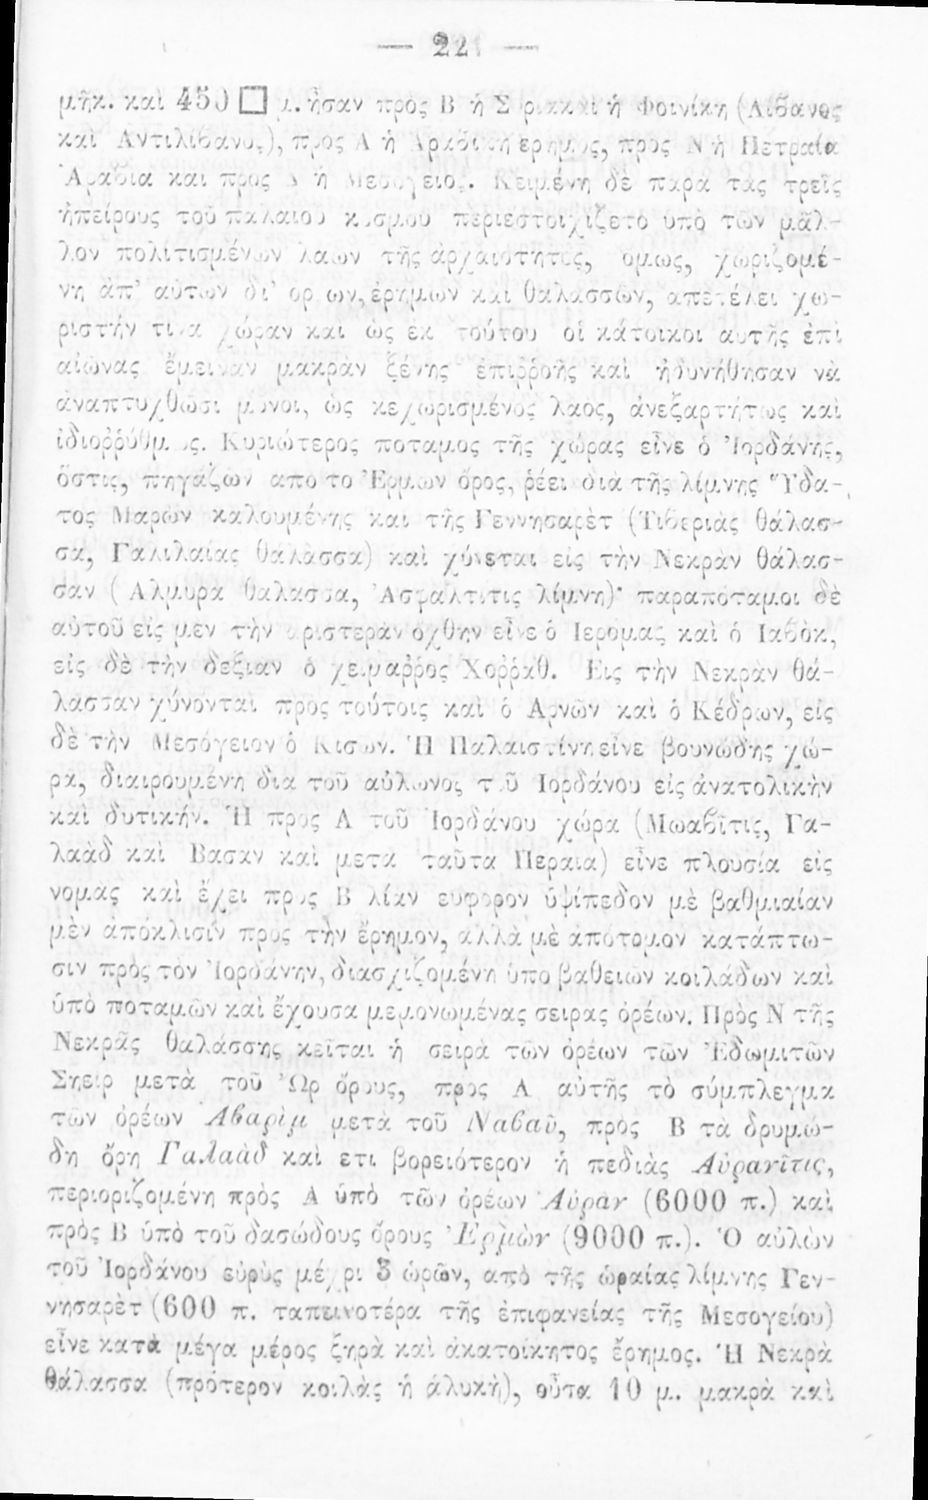 — 22 —
μῆκ. καὶ 450 □ μ. ἦσαν πρὸς Β ἡ Συρία καὶ ἡ Φοινίκη (Λίβανος
καὶ Ἀντιλίβανος), πρὸς Α ἡ Ἀραβικὴ ἔρημος, πρὸς Ν ἡ Πετραία
Ἀραβία καὶ πρὸς Δ ἡ Μεσόγειος. Κειμένη δὲ παρὰ τὰς τρεῖς
ἠπείρους τοῦ παλαιοῦ κόσμου περιεστοιχίζετο ὑπὸ τῶν μᾶλ-
λον πολιτισμένων λαῶν τῆς ἀρχαιότητος, ὅμως, χωριζομέ-
νη ἀπ' αὐτῶν δι' ὀρέων, ἐρήμων καὶ θαλασσῶν, ἀπετέλει χω-
ριστήν τινα χώραν καὶ ὡς ἐκ τούτου οἱ κάτοικοι αὐτῆς ἐπὶ
αἰῶνας ἔμειναν μακρὰν ξένης ἐπιῤῥοῆς καὶ ἠδυνήθησαν νὰ
ἀναπτυχθῶσι μόνοι, ὡς κεχωρισμένος λαός, ἀνεξαρτήτως καὶ
ἰδιοῤῥύθμως. Κυριώτερος ποταμὸς τῆς χώρας εἶνε ὁ Ἰορδάνης,
ὅστις, πηγάζων ἀπὸ τὸ Ἑρμὼν ὄρος, ῥέει διὰ τῆς λίμνης Ὕδα-
τος Μαρὼν καλουμένης καὶ τῆς Γεννησαρὲτ (Τιβεριὰς θάλασ-
σα, Γαλιλαίας θάλασσα) καὶ χύνεται εἰς τὴν Νεκρὰν θάλασ-
σαν (Ἁλμυρὰ θάλασσα, Ἀσφαλτῖτις λίμνη)· παραπόταμοι δὲ
αὐτοῦ εἰς μὲν τὴν ἀριστερὰν ὄχθην εἶνε ὁ Ἱερομὰς καὶ ὁ Ἰαβόκ,
εἰς δὲ τὴν δεξιὰν ὁ χείμαῤῥος Χοῤῥάθ. Εἰς τὴν Νεκρὰν θά-
λασσαν χύνονται πρὸς τούτοις καὶ ὁ Ἀρνὼν καὶ ὁ Κέδρων, εἰς
δὲ τὴν Μεσόγειον ὁ Κισών. Ἡ Παλαιστίνη εἶνε βουνώδης χώ-
ρα, διαιρουμένη διὰ τοῦ αὐλῶνος τοῦ Ἰορδάνου εἰς ἀνατολικὴν
καὶ δυτικήν. Ἡ πρὸς Α τοῦ Ἰορδάνου χώρα (Μωαβῖτις, Γα-
λαὰδ καὶ Βασὰν καὶ μετὰ ταῦτα Περαία) εἶνε πλουσία εἰς
νομὰς καὶ ἔχει πρὸς Β λίαν εὔφορον ὑψίπεδον μὲ βαθμιαίαν
μὲν ἀπόκλισιν πρὸς τὴν ἔρημον, ἀλλὰ μὲ ἀπότομον κατάπτω-
σιν πρὸς τὸν Ἰορδάνην, διασχιζομένη ὑπὸ βαθειῶν κοιλάδων καὶ
ὑπὸ ποταμῶν καὶ ἔχουσα μεμονωμένας σειρὰς ὀρέων. Πρὸς Ν τῆς
Νεκρᾶς θαλάσσης κεῖται ἡ σειρὰ τῶν ὀρέων τῶν Ἐδωμιτῶν
Σηεὶρ μετὰ τοῦ Ὢρ ὄρους, πρὸς Α αὐτῆς τὸ σύμπλεγμα
τῶν ὀρέων Ἀβαρὶμ μετὰ τοῦ Ναβαῦ, πρὸς Β τὰ δρυμώ-
δη ὄρη Γαλαὰδ καὶ ἔτι βορειότερον ἡ πεδιὰς Αὐρανῖτις,
περιοριζομένη πρὸς Α ὑπὸ τῶν ὀρέων Αὐρὰν (6000 π.) καὶ
πρὸς Β ὑπὸ τοῦ δασώδους ὄρους Ἑρμὼν (9000 π.). Ὁ αὐλὼν
τοῦ Ἰορδάνου εὐρὺς μέχρι 3 ὡρῶν, ἀπὸ τῆς ὡραίας λίμνης Γεν-
νησαρὲτ (600 π. ταπεινοτέρα τῆς ἐπιφανείας τῆς Μεσογείου)
εἶνε κατὰ μέγα μέρος ξηρὰ καὶ ἀκατοίκητος ἔρημος. Ἡ Νεκρὰ
θάλασσα (πρότερον κοιλὰς ἡ ἁλυκή), οὖσα 10 μ. μακρὰ καὶ